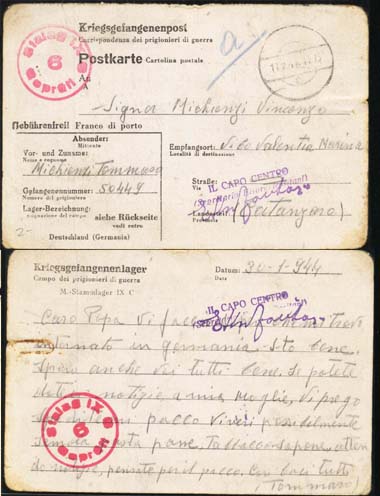 Kriegsgefangenenpost
Corrispondenza dei prigionieri di guerra
Postkarte Cartolina postale
An
A
Stalag IX C
6
Geprüft
Signa Michienzi Vincenzo
Gebührenfrei! Franco di porto
Absender:
Mittente
Vor- und Zuname:
Nome e cognome
Michienzi Tommaso
Gefangenennummer: 50449
Numero del prigioniero
Lager-Bezeichnung:
siehe Rückseite
vedi retro
Deutschland (Germania)
Empfangsort: Vibo Valentia Marina
Località di destinazione
Straße:
Via
IL CAPO CENTRO
(Catanzaro)
Kriegsgefangenenlager
Campo dei prigionieri di guerra
M.-Stammlager IX C
Datum: 30-1-944
Data
IL CAPO CENTRO
Caro Papa Vi
internato in germania. sto bene
spero anche voi tutti bene. Se potete
notizie a mia moglie, vi prego
pacco viveri possibilmente
pasta pane, Tabacco sapone,
notizie, pensate per il pacco, baci tutti
Tommaso
Stalag IX C
6
Geprüft